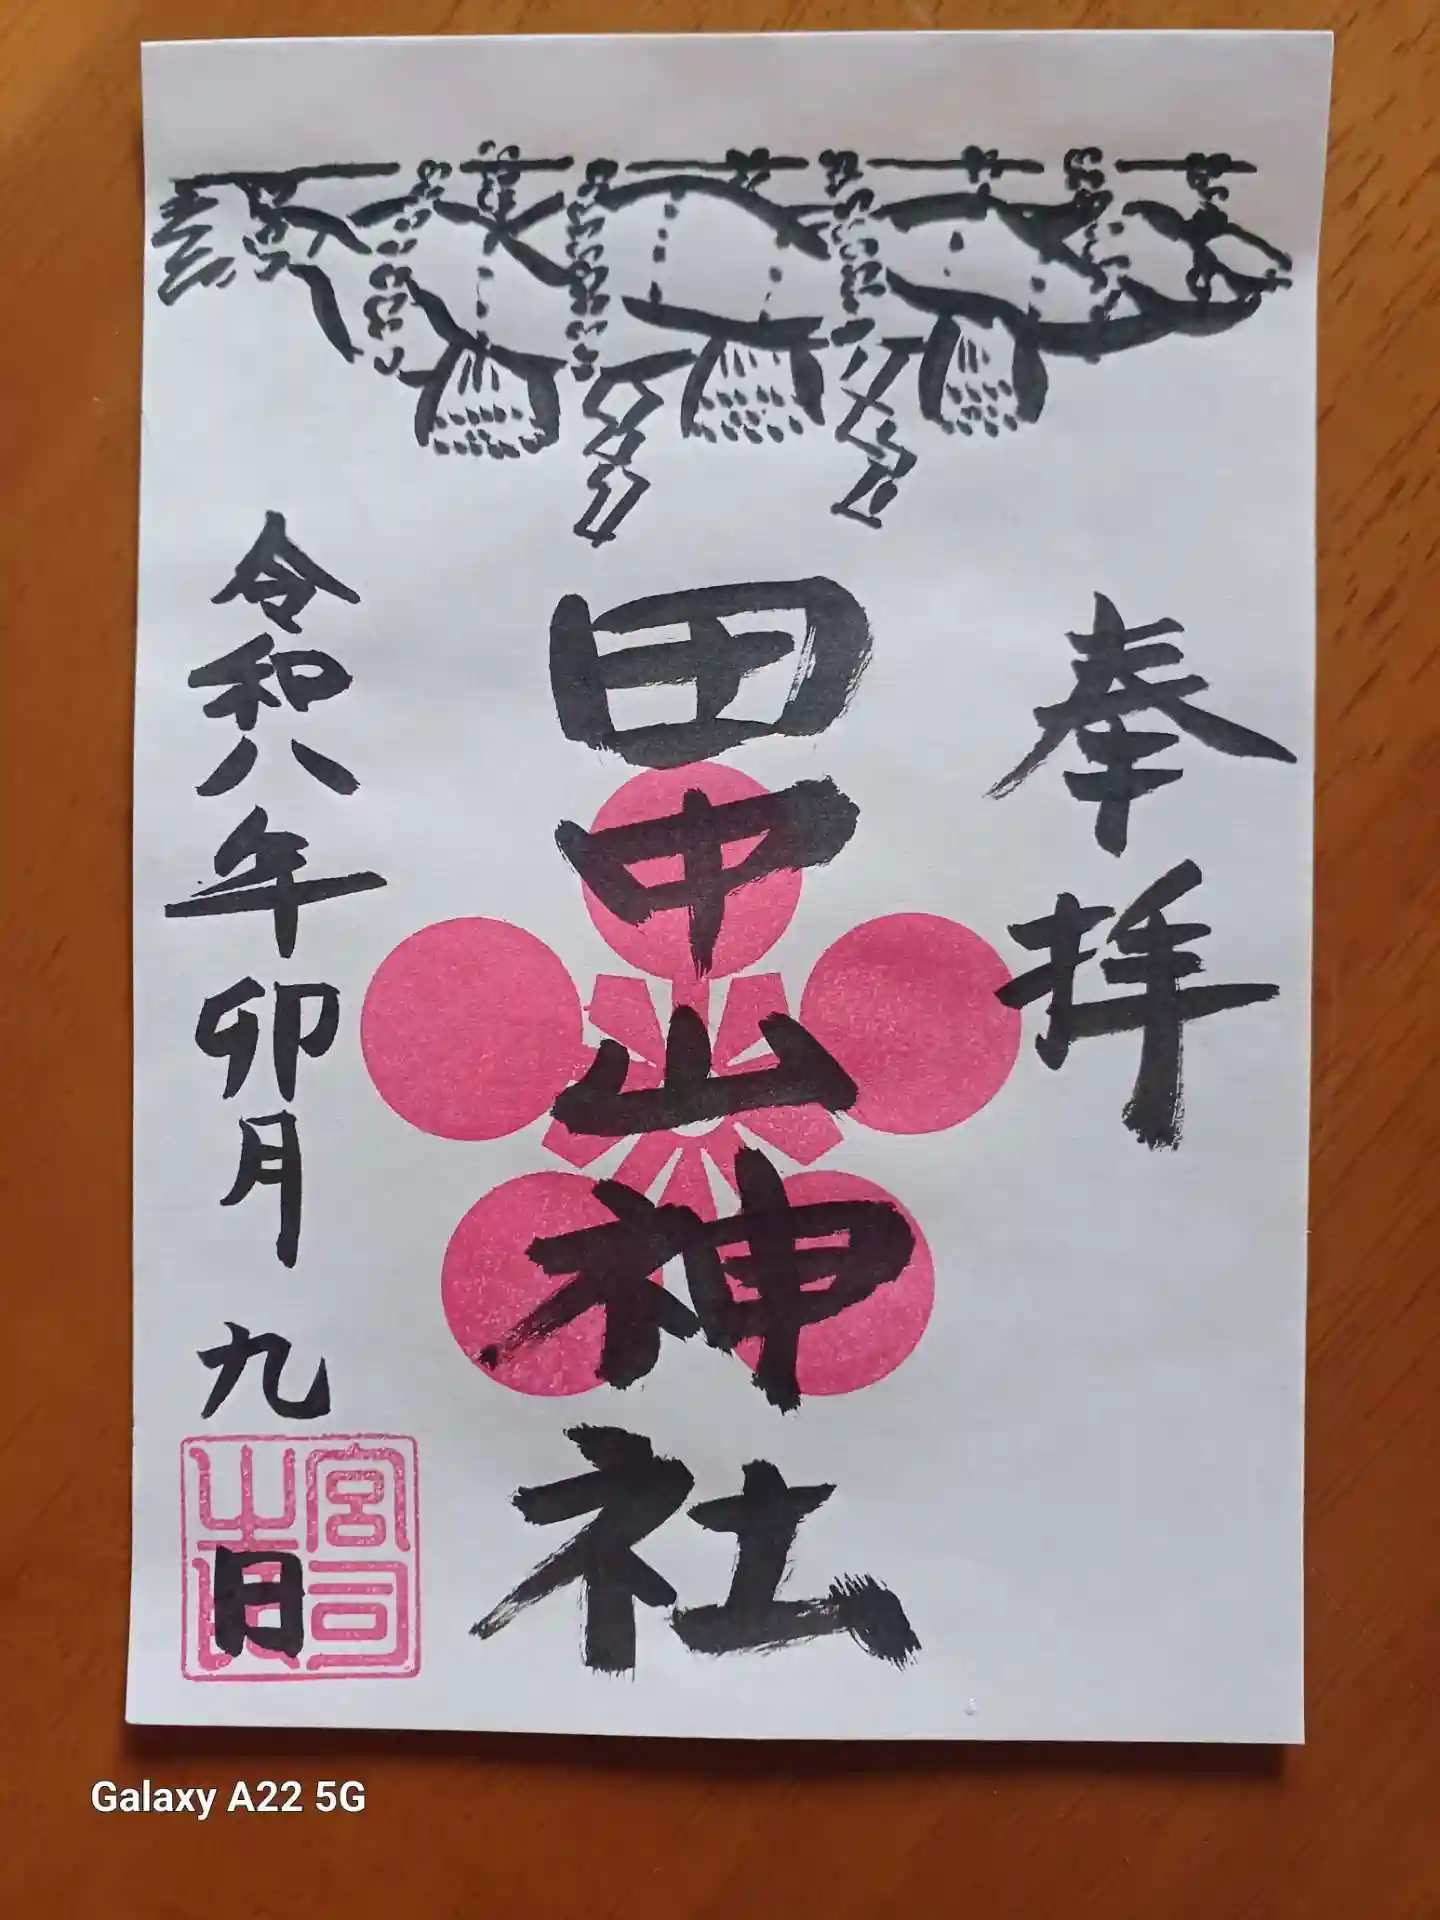 奉拝
田中山神社
令和八年卯月九日
宮司
Galaxy A22 5G